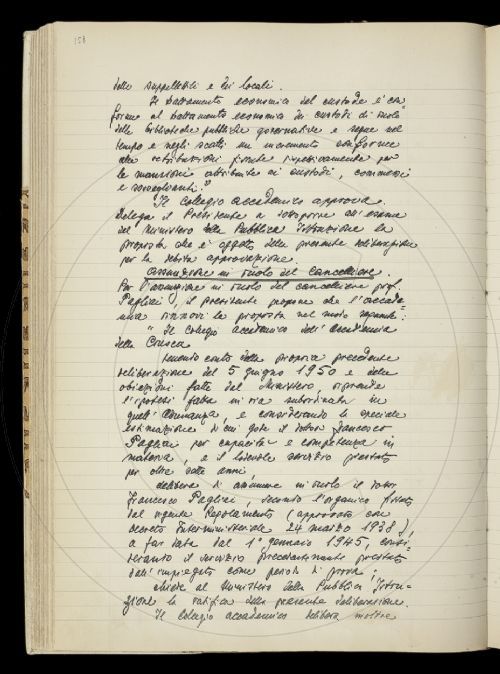 158
delle suppellettili e dei locali.
Il trattamento economico del custode è con=
forme al trattamento economico dei custodi di ruolo
delle biblioteche pubbliche governative e segue nel
tempo e negli scatti un incremento conforme
alle retribuzioni fissate rispettivamente per
le mansioni attribuite ai custodi, commessi
e sorveglianti."
"Il Collegio accademico approva.
Delega il Presidente a sottoporre all'esame
del Ministero della Pubblica Istruzione la
proposta che è oggetto della presente deliberazione
per la debita approvazione.
Assunzione in ruolo del cancelliere.
Per l'assunzione in ruolo del cancelliere prof.
Pagliai, il presidente propone che l'accade=
mia rinnovi la proposta nel modo seguente:
"Il Collegio accademico dell'Accademia
della Crusca
tenendo conto della propria precedente
deliberazione del 5 giugno 1950 e delle
obiezioni fatte dal Ministero, riprende
l'ipotesi fatta in via subordinata in
quell'adunanza, e considerando la speciale
estimazione di cui gode il dottor Francesco
Pagliai per capacità e competenza in
materia, e il lodevole servizio prestato
per oltre sette anni
delibera di assumere in ruolo il dottor
Francesco Pagliai, secondo l'organico fissato
dal vigente Regolamento (approvato con
decreto Interministeriale 24 marzo 1938),
a far data dal 1° gennaio 1945, consi=
derando il servizio precedentemente prestato
dall'impiegato come periodo di prova;
chiede al Ministero della Pubblica Istru=
zione la ratifica della presente deliberazione.
Il Collegio accademico delibera inoltre